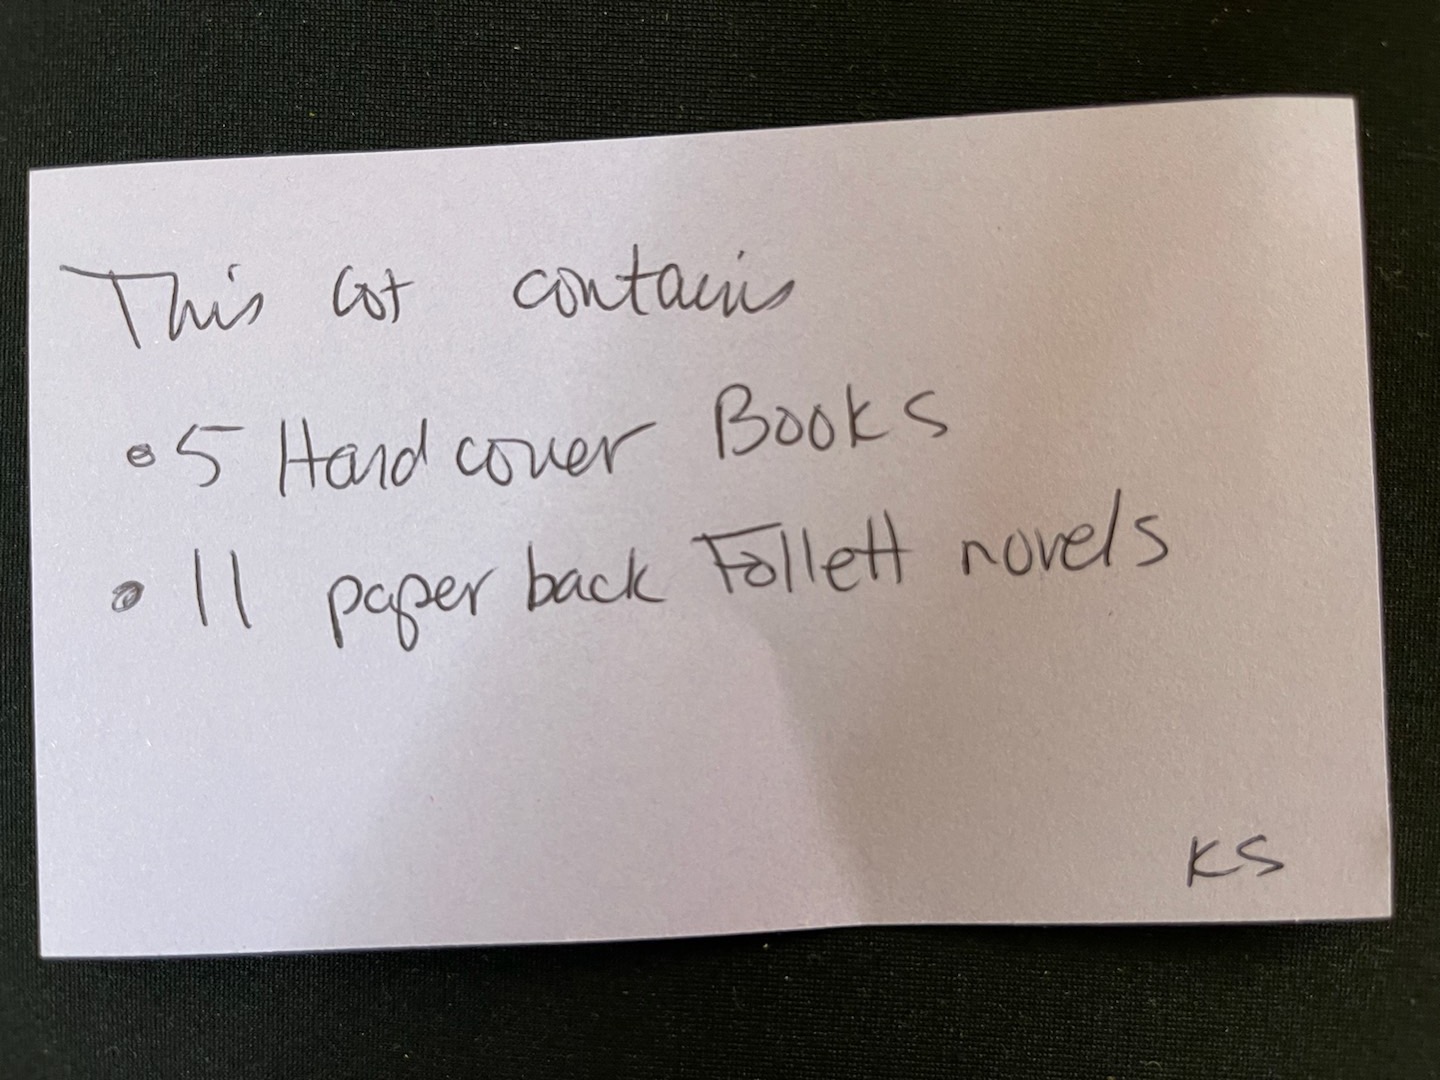 This lot contains
• 5 Hardcover Books
• 11 paperback Follett novels
KS